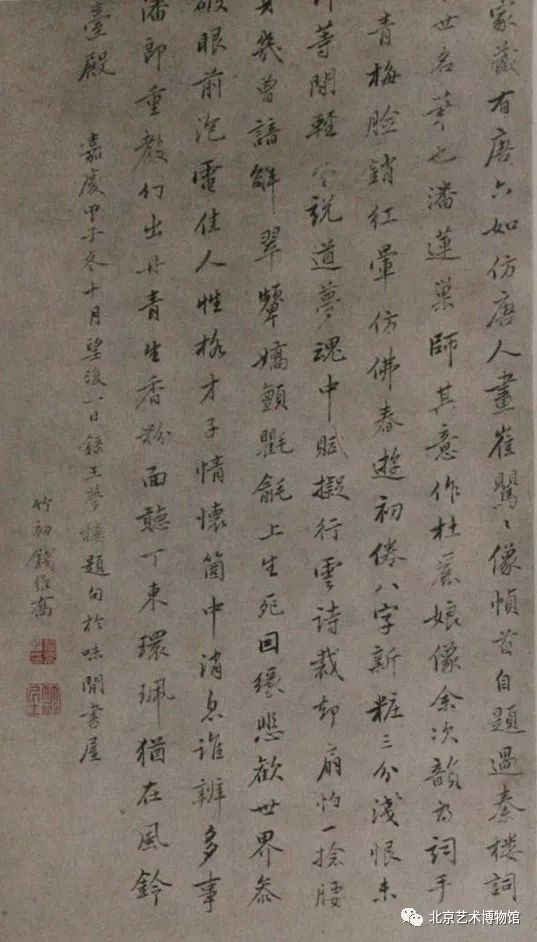 家藏有唐六如仿唐人畫崔鶯〻像幀首自題過秦樓詞
世名筆也潘蓮巢師其意作杜麗娘像余次韻為詞手
青梅臉銷紅暈仿佛春遊初倦八字新粧三分淺恨未
等閒輕說道夢魂中賦擬行雲詩裁却扇怕一捻腰
幾曾諳解翠顰嬌顫氍毹上生死回環悲歡世界參
破眼前泡電佳人性格才子情懷箇中消息誰辨多事
潘郎重教幻出丹青生香粉面聽丁東環珮猶在風鈴
臺殿
嘉慶甲子冬十月望後一日錄王夢樓題句於味閒書屋
竹初錢維喬
北京艺术博物馆